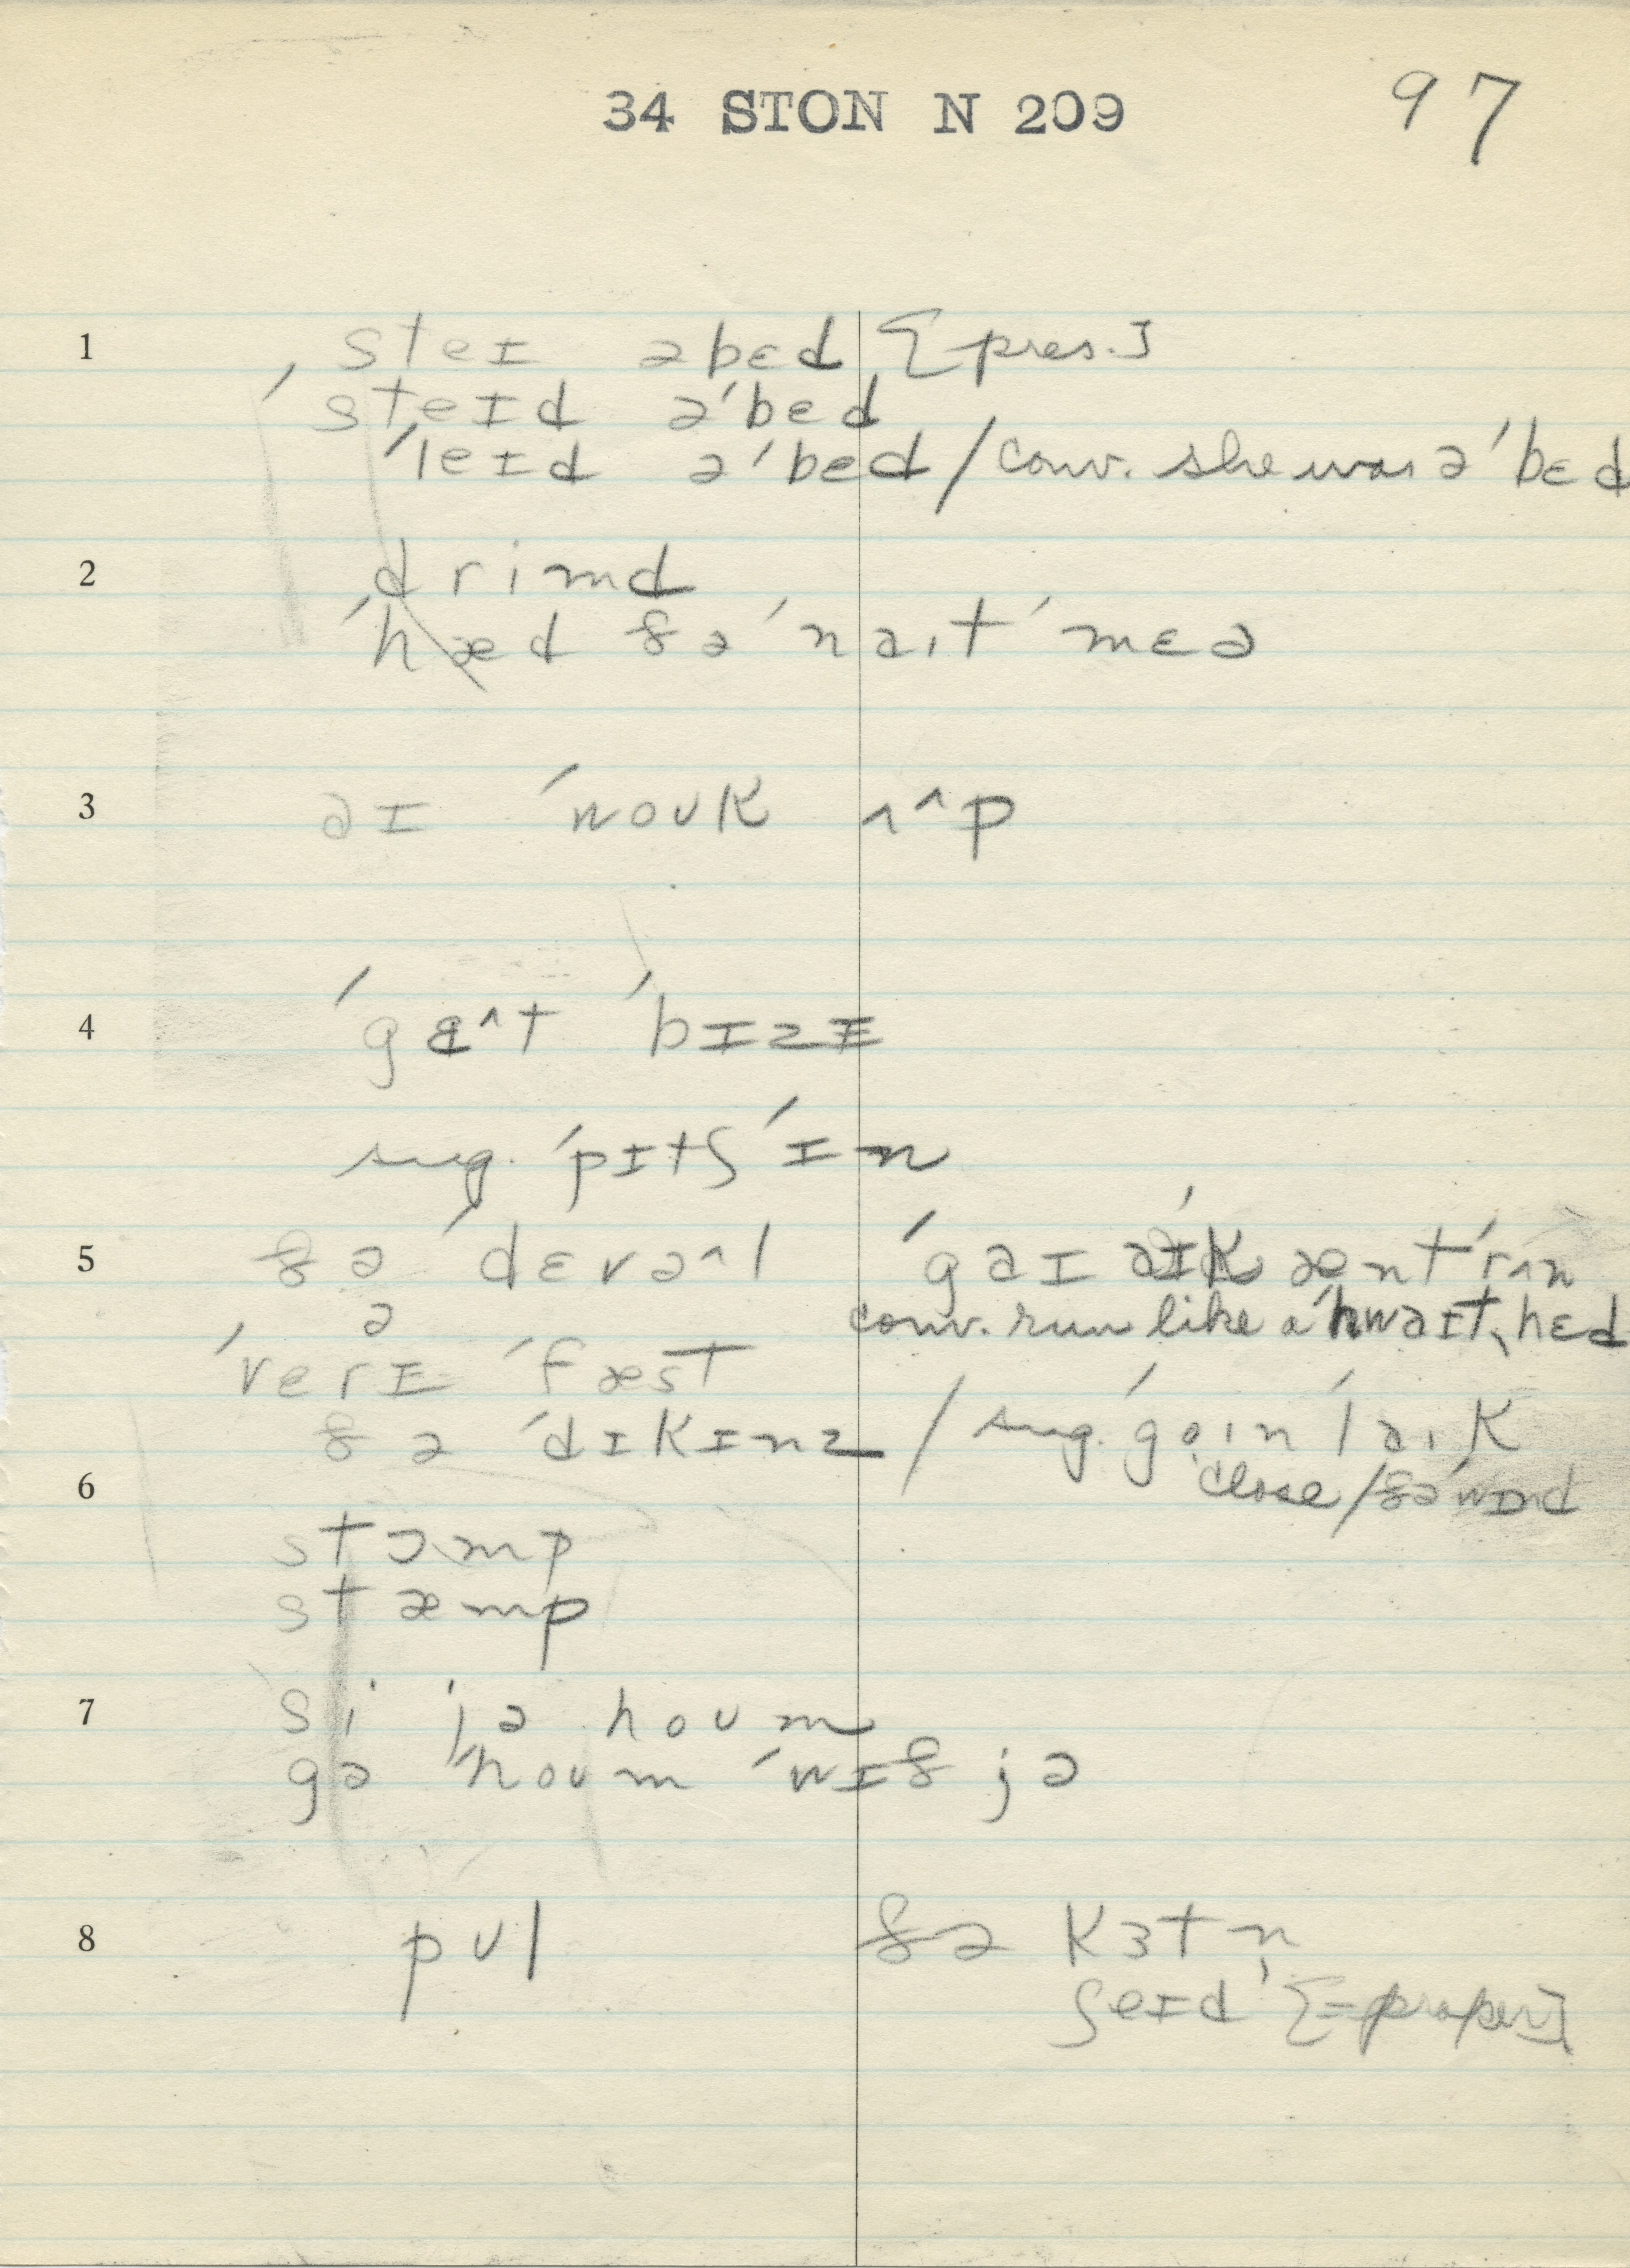 34 STON N 209 97
1 ˌsteɪ əbɛd [pres.]
ˈsteɪd əˈbed
ˈleɪd əˈbed / conv. she was əˈbɛd
2 drimd
ˈhæd ðəˈnaɪtˈmɛə
3 aɪ ˈwouk ʌ^p
4 ˈgɛ^t ˈbɪzɪ
sug. ˈpɪtʃ ˈɪn
5 ðə ˈdɛvə^l ˈgaɪ aɪk æntˈrʌn
ə conv. run like a ˈhwaɪtˌhɛd
ˈverɪ ˈfæst
ðə ˈdɪkɪnz / sug. ˈgoɪn ˈlaɪk
6 close / ðəˈwɪnd
stɔmp
stæmp
7 si jə houm
gə ˈhoum ˈwɪð jə
8 pʊl ðə kɜtn̩
ʃeɪd [=proper]